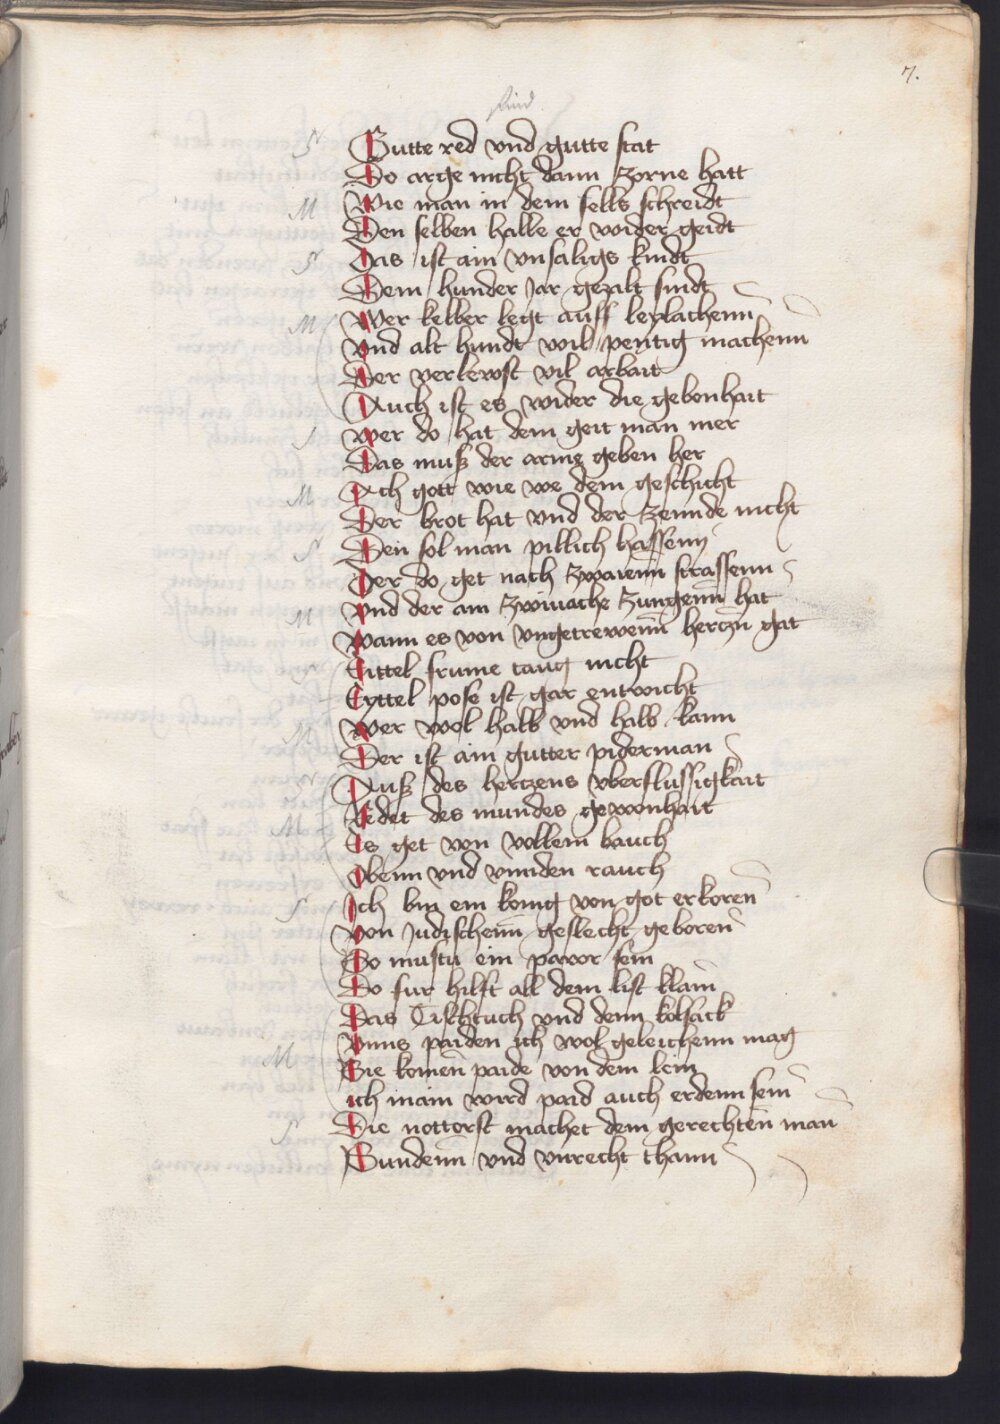 7.
find
S Gutte red vnd gutte stat
Do arge nicht dann zorne hatt
M Wie man in dem selbs schreidt
Den selben halle er wider geidt
S Das ist ain vnsaligs kindt
Dem hunder Jar gezalt sindt
M Wer kelber legt auff leylachenn
Vnd alt hundt wil pentig machenn
Der verlewst vil arbait
Auch ist es wider die gebonhait
S wer do hat dem geit man mer
Das muß der arme geben her
M Ach gott wie we dem geschicht
Der brot hat vnd der zennde nicht
S Den sol man pillich hassenn
Der do get nach zwaienn strassenn
M Vnd der ain zwiuache zungenn hat
Wann es von vngetrewenn hertzn gat
S Eittel frume taug nicht
Eyttel pose ist gar entwicht
M Wer wol halb vnd halb kann
Der ist ain gutter piderman
S Auß des hertzens vberflussigkait
Redet des mundes gewonhait
M Es get von vollem bauch
Obenn vnd vnnden rauch
S Ich bin ein konig von got erkoren
Von Judischenn geslecht geboren
So mustu ein pawor sein
Do fur hilft all dem list klain
Das Tischtuch vnd denn kolsack
Vnns paiden ich wol geleichenn mag
M Sie komen paide von dem lein
ich main wird paid auch erdenn sein
S Die nottorft machet dem gerechten man
Sundenn vnd vnrecht thann